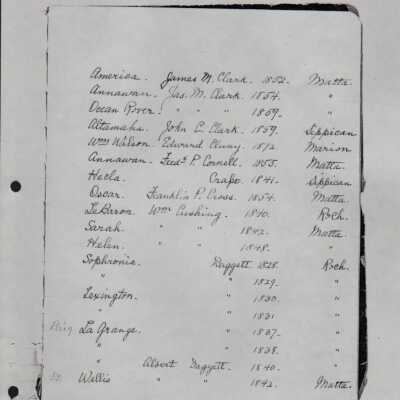 America. James M. Clark. 1852. Matta.
Annawan. Jas. M. Clark. 1854. "
Ocean Rover. " " " 1859. "
Altamaha. John C. Clark. 1859. Sippican
Wm Wilson. Edward Cluny. 1812. Marion
Annawan. Fredk P. Cornell. 1855. Matta.
Hecla. Crapo. 1841. Sippican
Oscar. Franklin P. Cross. 1854. Matta
LeBaron. Wm Cushing. 1840. Roch.
Sarah. " " 1842. Matta
Helen. " " 1848. "
Sophronia. Daggett. 1828. Roch.
" " 1829. "
Lexington. " 1830. "
" " 1831 "
Brig La Grange. " 1837. "
" " 1838. "
" Albert Daggett. 1840. "
Willis " " 1842. Matta.